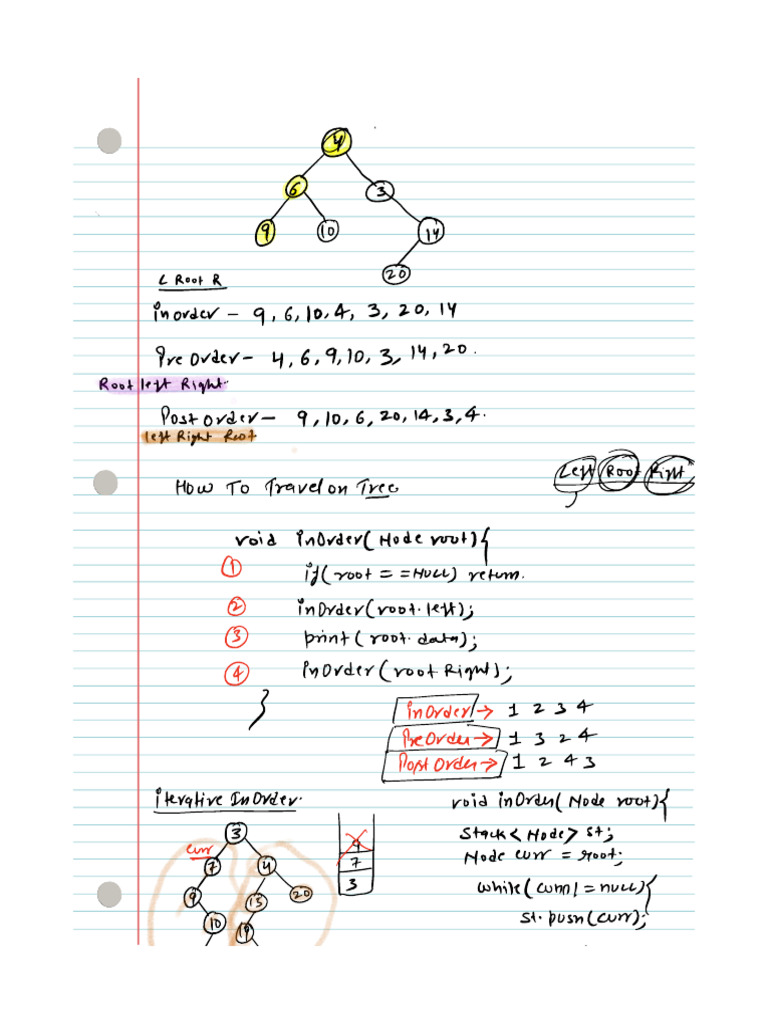 4
6 3
9 10 14
20
L Root R
Inorder - 9, 6, 10, 4, 3, 20, 14
Pre Order - 4, 6, 9, 10, 3, 14, 20.
Root left Right.
Post order - 9, 10, 6, 20, 14, 3, 4.
left Right Root
Left Root Right
How To Travel on Tree
void inOrder(Node root){
① if(root = = NULL) return.
② inOrder(root.left);
③ print(root.data);
④ InOrder(root Right);
}
InOrder → 1 2 3 4
PreOrder → 1 3 2 4
Post Order → 1 2 4 3
iterative InOrder.
void inOrder(Node root){
Stack<Node> st;
Node curr = root;
while(curr != null){
st.push(curr);
curr
3
7 4
9 13 20
10 19
9
7
3